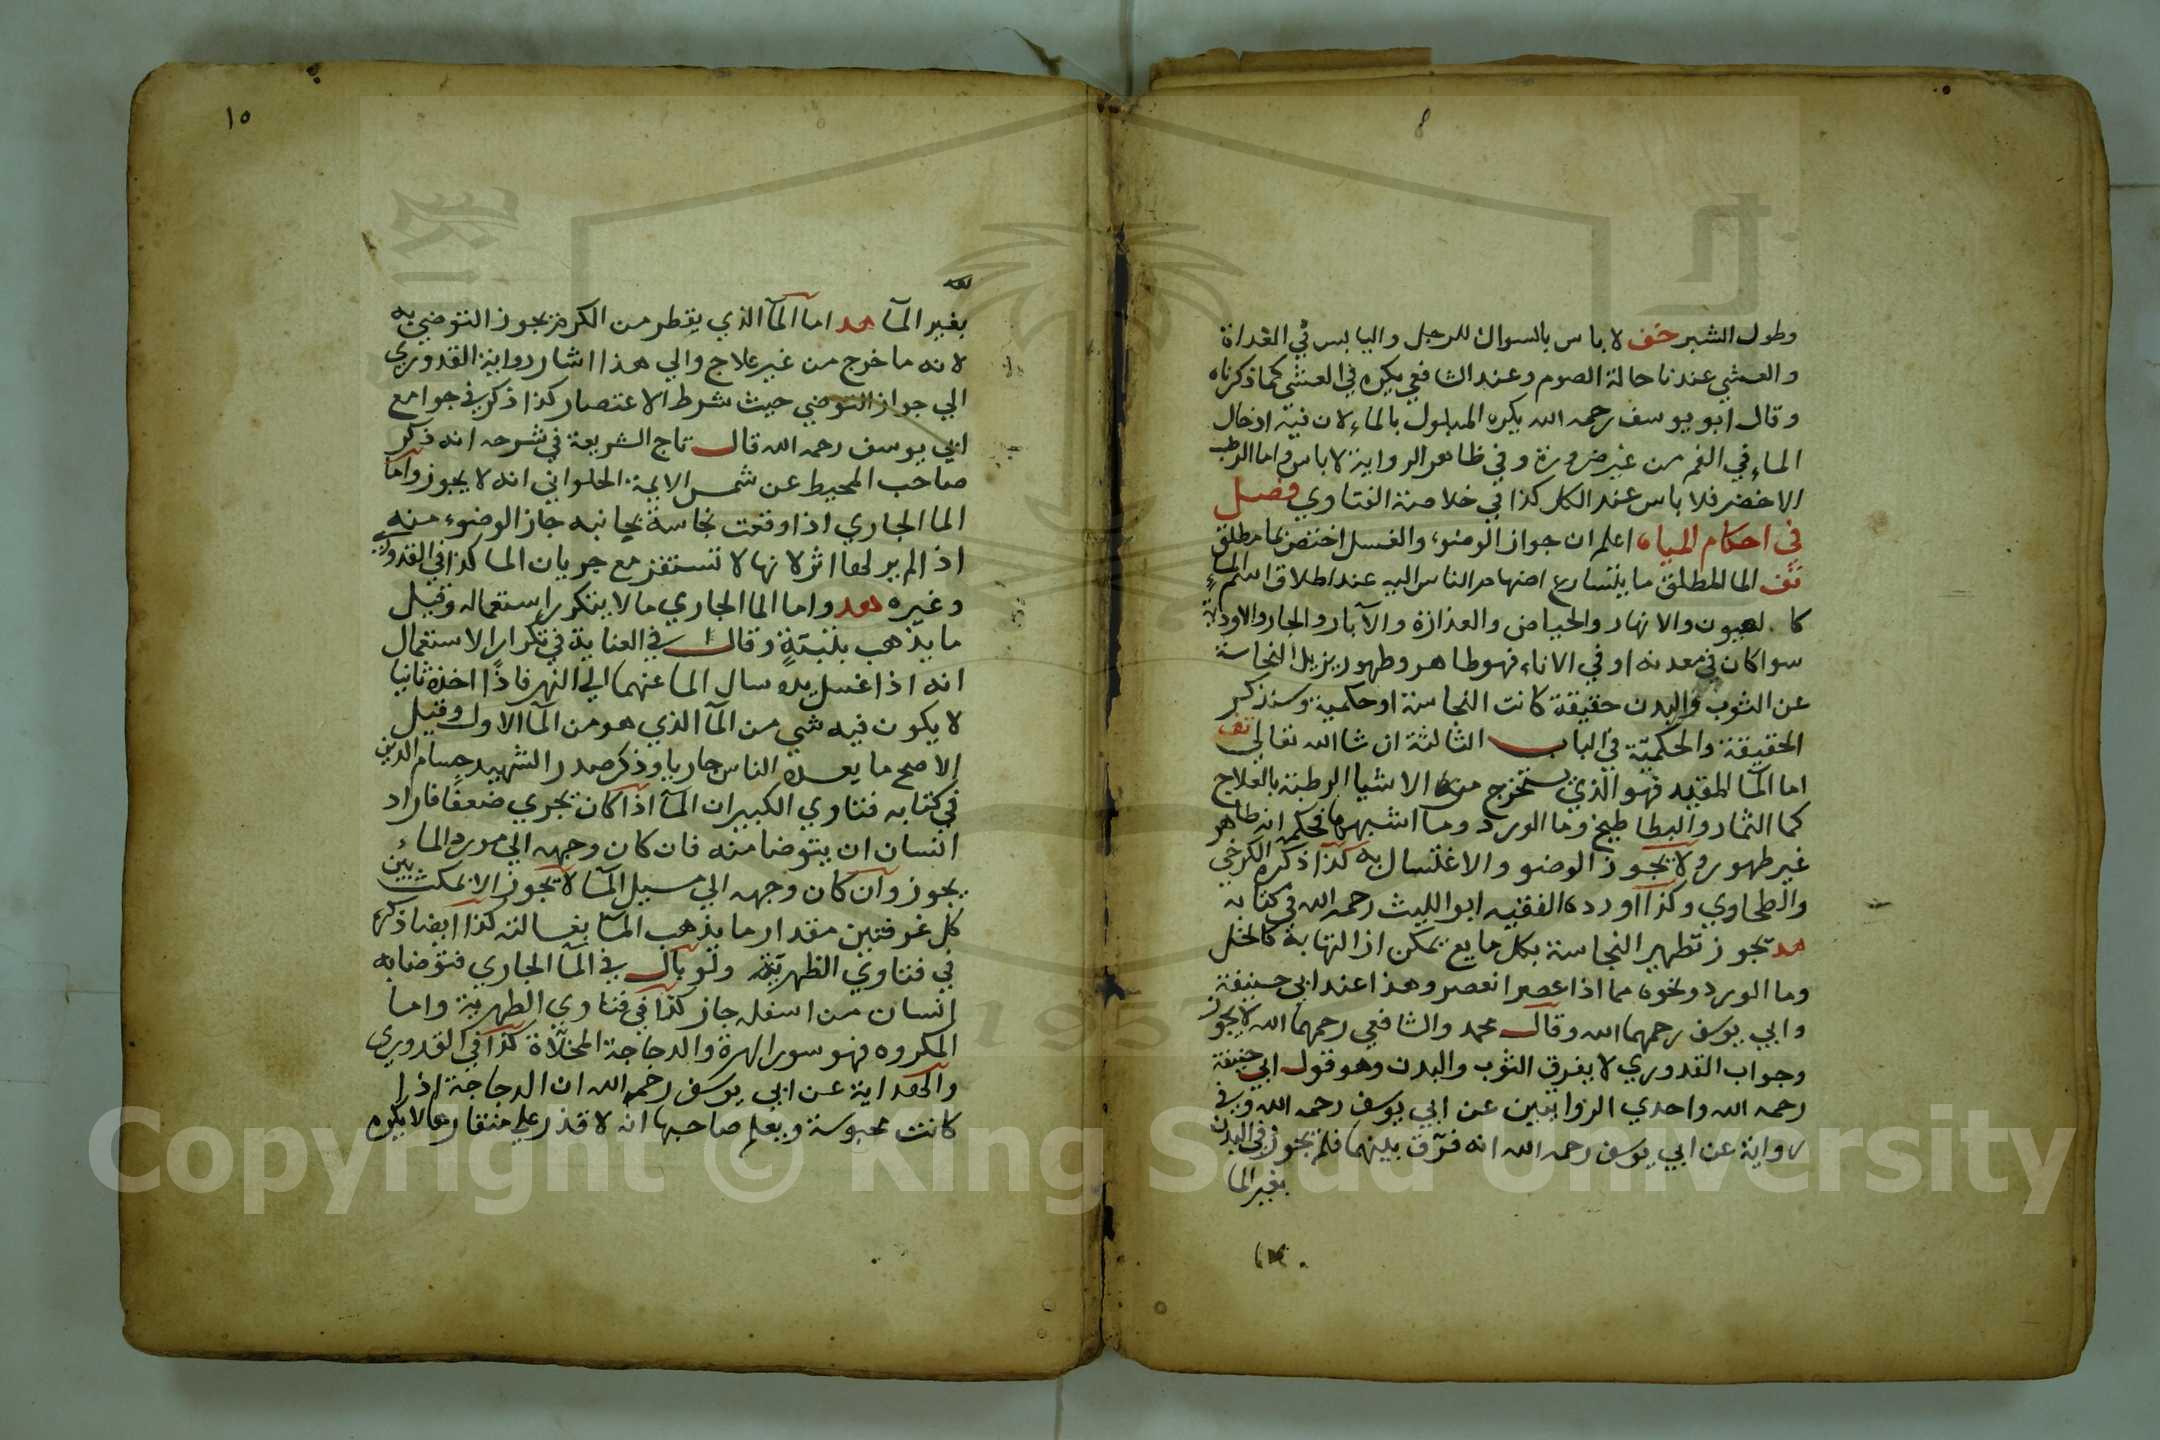 وطول الشبر خف لا باس بالسواك للرجل واليابس في الغداة
والعشي عندنا حالة الصوم وعند الشافعي يكره في العشي كما ذكرناه
وقال ابو يوسف رحمه الله يكره المبلول بالماء لان فيه ادخال
الماء في الفم من غير ضرورة وفي ظاهر الرواية لا باس واما الرطب
الاخضر فلا باس عند الكل كذا في خلاصة الفتاوي فصل
في احكام المياه اعلم ان جواز الوضوء والغسل اختص بما مطلق
تف الما المطلق ما يتسارع افهام الناس اليه عند اطلاق اسم الماء
كا لعيون والانهار والحياض والآبار والاودية
سوا كان في معدنه او في الاناء فهو طاهر وطهور يزيل النجاسة
عن الثوب والبدن حقيقة كانت النجاسة او حكمية وسنذكر
الحقيقة والحكمية في الباب الثالثة ان شا الله تعالي تف
اما المآ المقيد فهو الذي يستخرج من الاشيا الرطبة بالعلاج
كما الثمار والبطاطيخ وما الورد وما اشبهها فحكمه انه طاهر
غير طهور ولا يجوز الوضو والاغتسال به كذا ذكره الكرخي
والطحاوي وكذا اورده الفقيه ابو الليث رحمه الله في كتابه
هد تجوز تطهير النجاسة بكل مايع يمكن ازالتها به كالخل
وما الورد ونحوه مما اذا عصر انعصر وهذا عند ابي حنيفة
وابي يوسف رحمهما الله وقال محمد والشافعي رحمهما الله لا يجوز
وجواب القدوري لا يفرق الثوب والبدن وهو قول ابي حنيفة
رحمه الله واحدي الروايتين عن ابي يوسف رحمه الله وفي
رواية عن ابي يوسف رحمه الله انه فرق بينهما فلم يجوز في البدن
بغير الما
١٥
بغير المآ هد اما المآ الذي يقطر من الكرم يجوز التوضي به
لانه ما خرج من غير علاج والي هذا اشار رواية القدوري
الي جواز التوضي حيث شرط الاعتصار كذا ذكر في جوامع
ابي يوسف رحمه الله قال تاج الشريعة في شرحه انه ذكر
صاحب المحيط عن شمس الايمة الحلواني انه لا يجوز واما
الما الجاري اذا وقعت نجاسة بجانبه جاز الوضوء منه
اذ الم ير لها اثر لانها لا تستقر مع جريان الما كذا في القدوري
وغيره هد واما الما الجاري ما لا يتكرر استعماله وقيل
ما يذهب بتبنة وقال في العناية في تكرار الاستعمال
انه اذا غسل يده سال الما عنهما الي النهر فاذا اخذه ثانيا
لا يكون فيه شي من المآ الذي هو من المآ الاول وقيل
الاصح ما يعده الناس جاريا وذكر صدر الشهيد حسام الدين
في كتابه فتاوي الكبير ان المآ اذا كان يجري ضعيفا فاراد
انسان ان يتوضا منه فان كان وجهه الي مورد الماء
يجوز وان كان وجهه الي مسيل المآ لا يجوز الا يمكث بين
كل غرفتين مقدار ما يذهب المآ بغسالته كذا ايضا ذكره
في فتاوي الظهرية ولو بال في المآ الجاري فتوضا به
انسان من اسفله جاز كذا في فتاوي الظهرية واما
المكروه فهو سور الهرة والدجاجة المخلاة كذا في القدوري
والهداية عن ابي يوسف رحمه الله ان الدجاجة اذا
كانت محبوسة ويعلم صاحبها انه لا قذر علي منقارها لا يكره
Copyright © King Saud University
1957